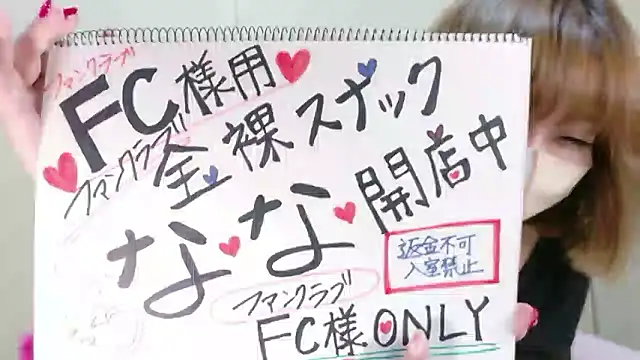 ファンクラブ
FC様用
ファンクラブ
全裸スナック
なな開店中
返金不可
入室禁止
ファンクラブ
FC様ONLY